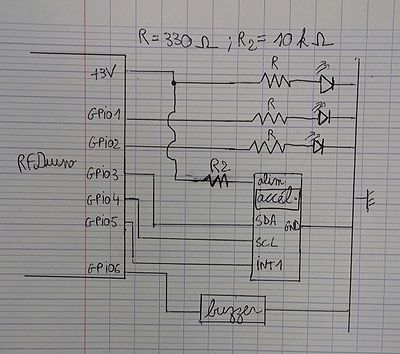 R = 330 Ω ; R2 = 10 k Ω
+3V
R
GPIO1
R
GPIO2
R
RFDuino
GPIO3
R2
alim
accél.
GPIO4
GPIO5
SDA
GND
SCL
INT1
GPIO6
buzzer